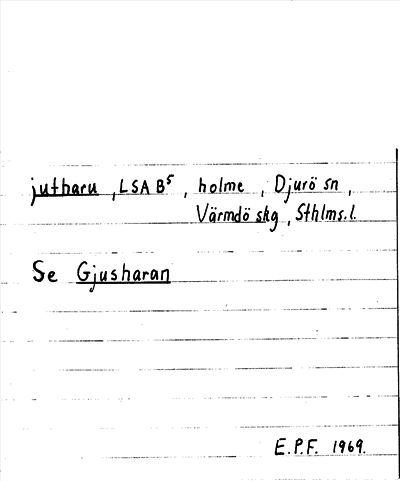 jutharu , LSA B⁵ , holme , Djurö sn ,
Värmdö skg , Sthlms.l.
Se Gjusharan
E.P.F. 1969.